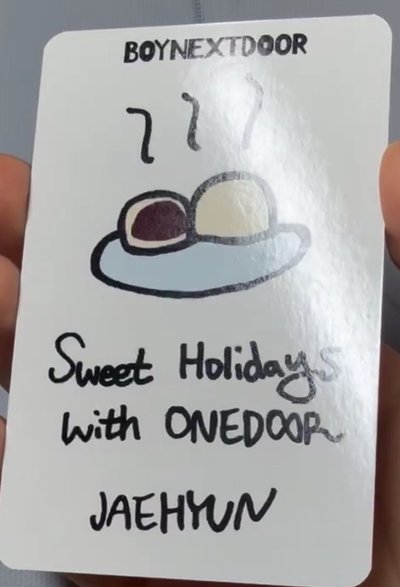 BOYNEXTDOOR
Sweet Holidays
with ONEDOOR
JAEHYUN